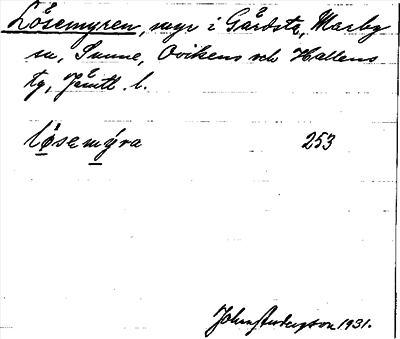 Lösemyren, myr i Gärdsta, Marby
sn, Sunne, Ovikens och Hallens
tg, Jämtl. l.
lösemýra 253
John Andersson 1931.